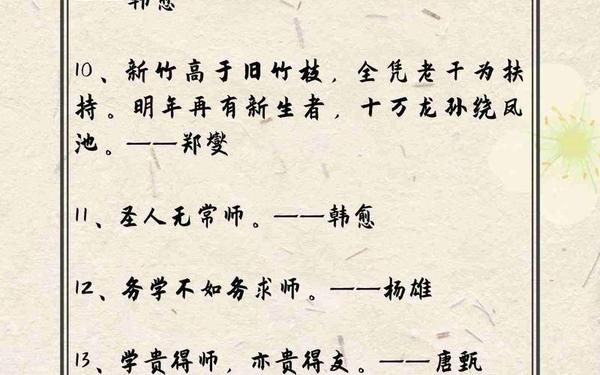 ——韩愈
10、新竹高于旧竹枝，全凭老干为扶
持。明年再有新生者，十万龙孙绕凤
池。——郑燮
11、圣人无常师。——韩愈
12、务学不如务求师。——杨雄
13、学贵得师，亦贵得友。——唐甄